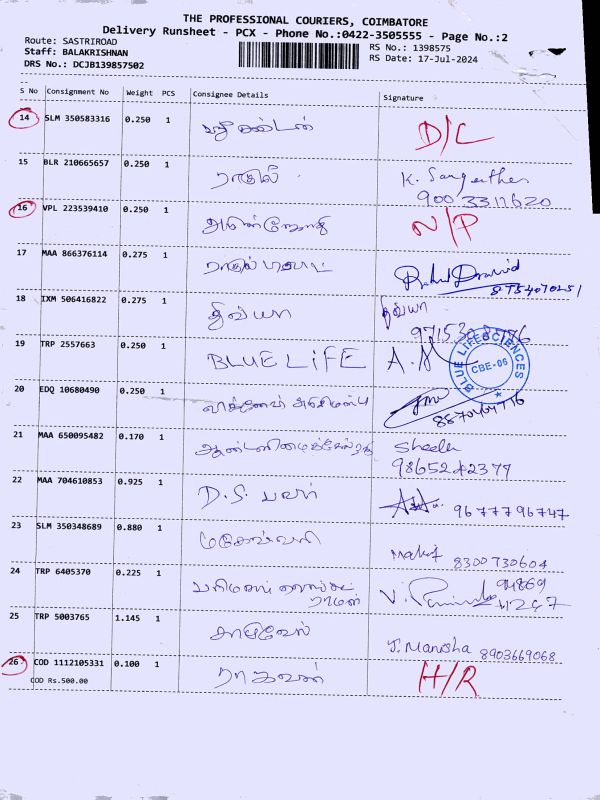 THE PROFESSIONAL COURIERS, COIMBATORE
Delivery Runsheet - PCX - Phone No.:0422-3505555 - Page No.:2
Route: SASTRIROAD
RS No.: 1398575
Staff: BALAKRISHNAN
RS Date: 17-Jul-2024
DRS No.: DCJB139857502
S No Consignment No Weight PCS Consignee Details Signature
14 SLM 350583316 0.250 1 D/C
15 BLR 210665657 0.250 1 ராகுல் K.
16 VPL 223539410 0.250 1 N/P
17 MAA 866376114 0.275 1 8754070251
18 IXM 506416822 0.275 1 திவ்யா திவ்யா
19 TRP 2557663 0.250 1 BLUE LiFE A.
BLUE LIFE SCIENCES
CBE-06
20 EDQ 10680490 0.250 1
21 MAA 650095482 0.170 1 Sheela
9865242377
22 MAA 704610853 0.925 1 D.S. 9677796747
23 SLM 350348689 0.880 1 மகேஷ்வரி 8300730604
24 TRP 6405370 0.225 1 V. 94869
41247
25 TRP 5003765 1.145 1 J. Manisha 8903669068
26 COD 1112105331 0.100 1 ராகவன் H/R
COD Rs.500.00